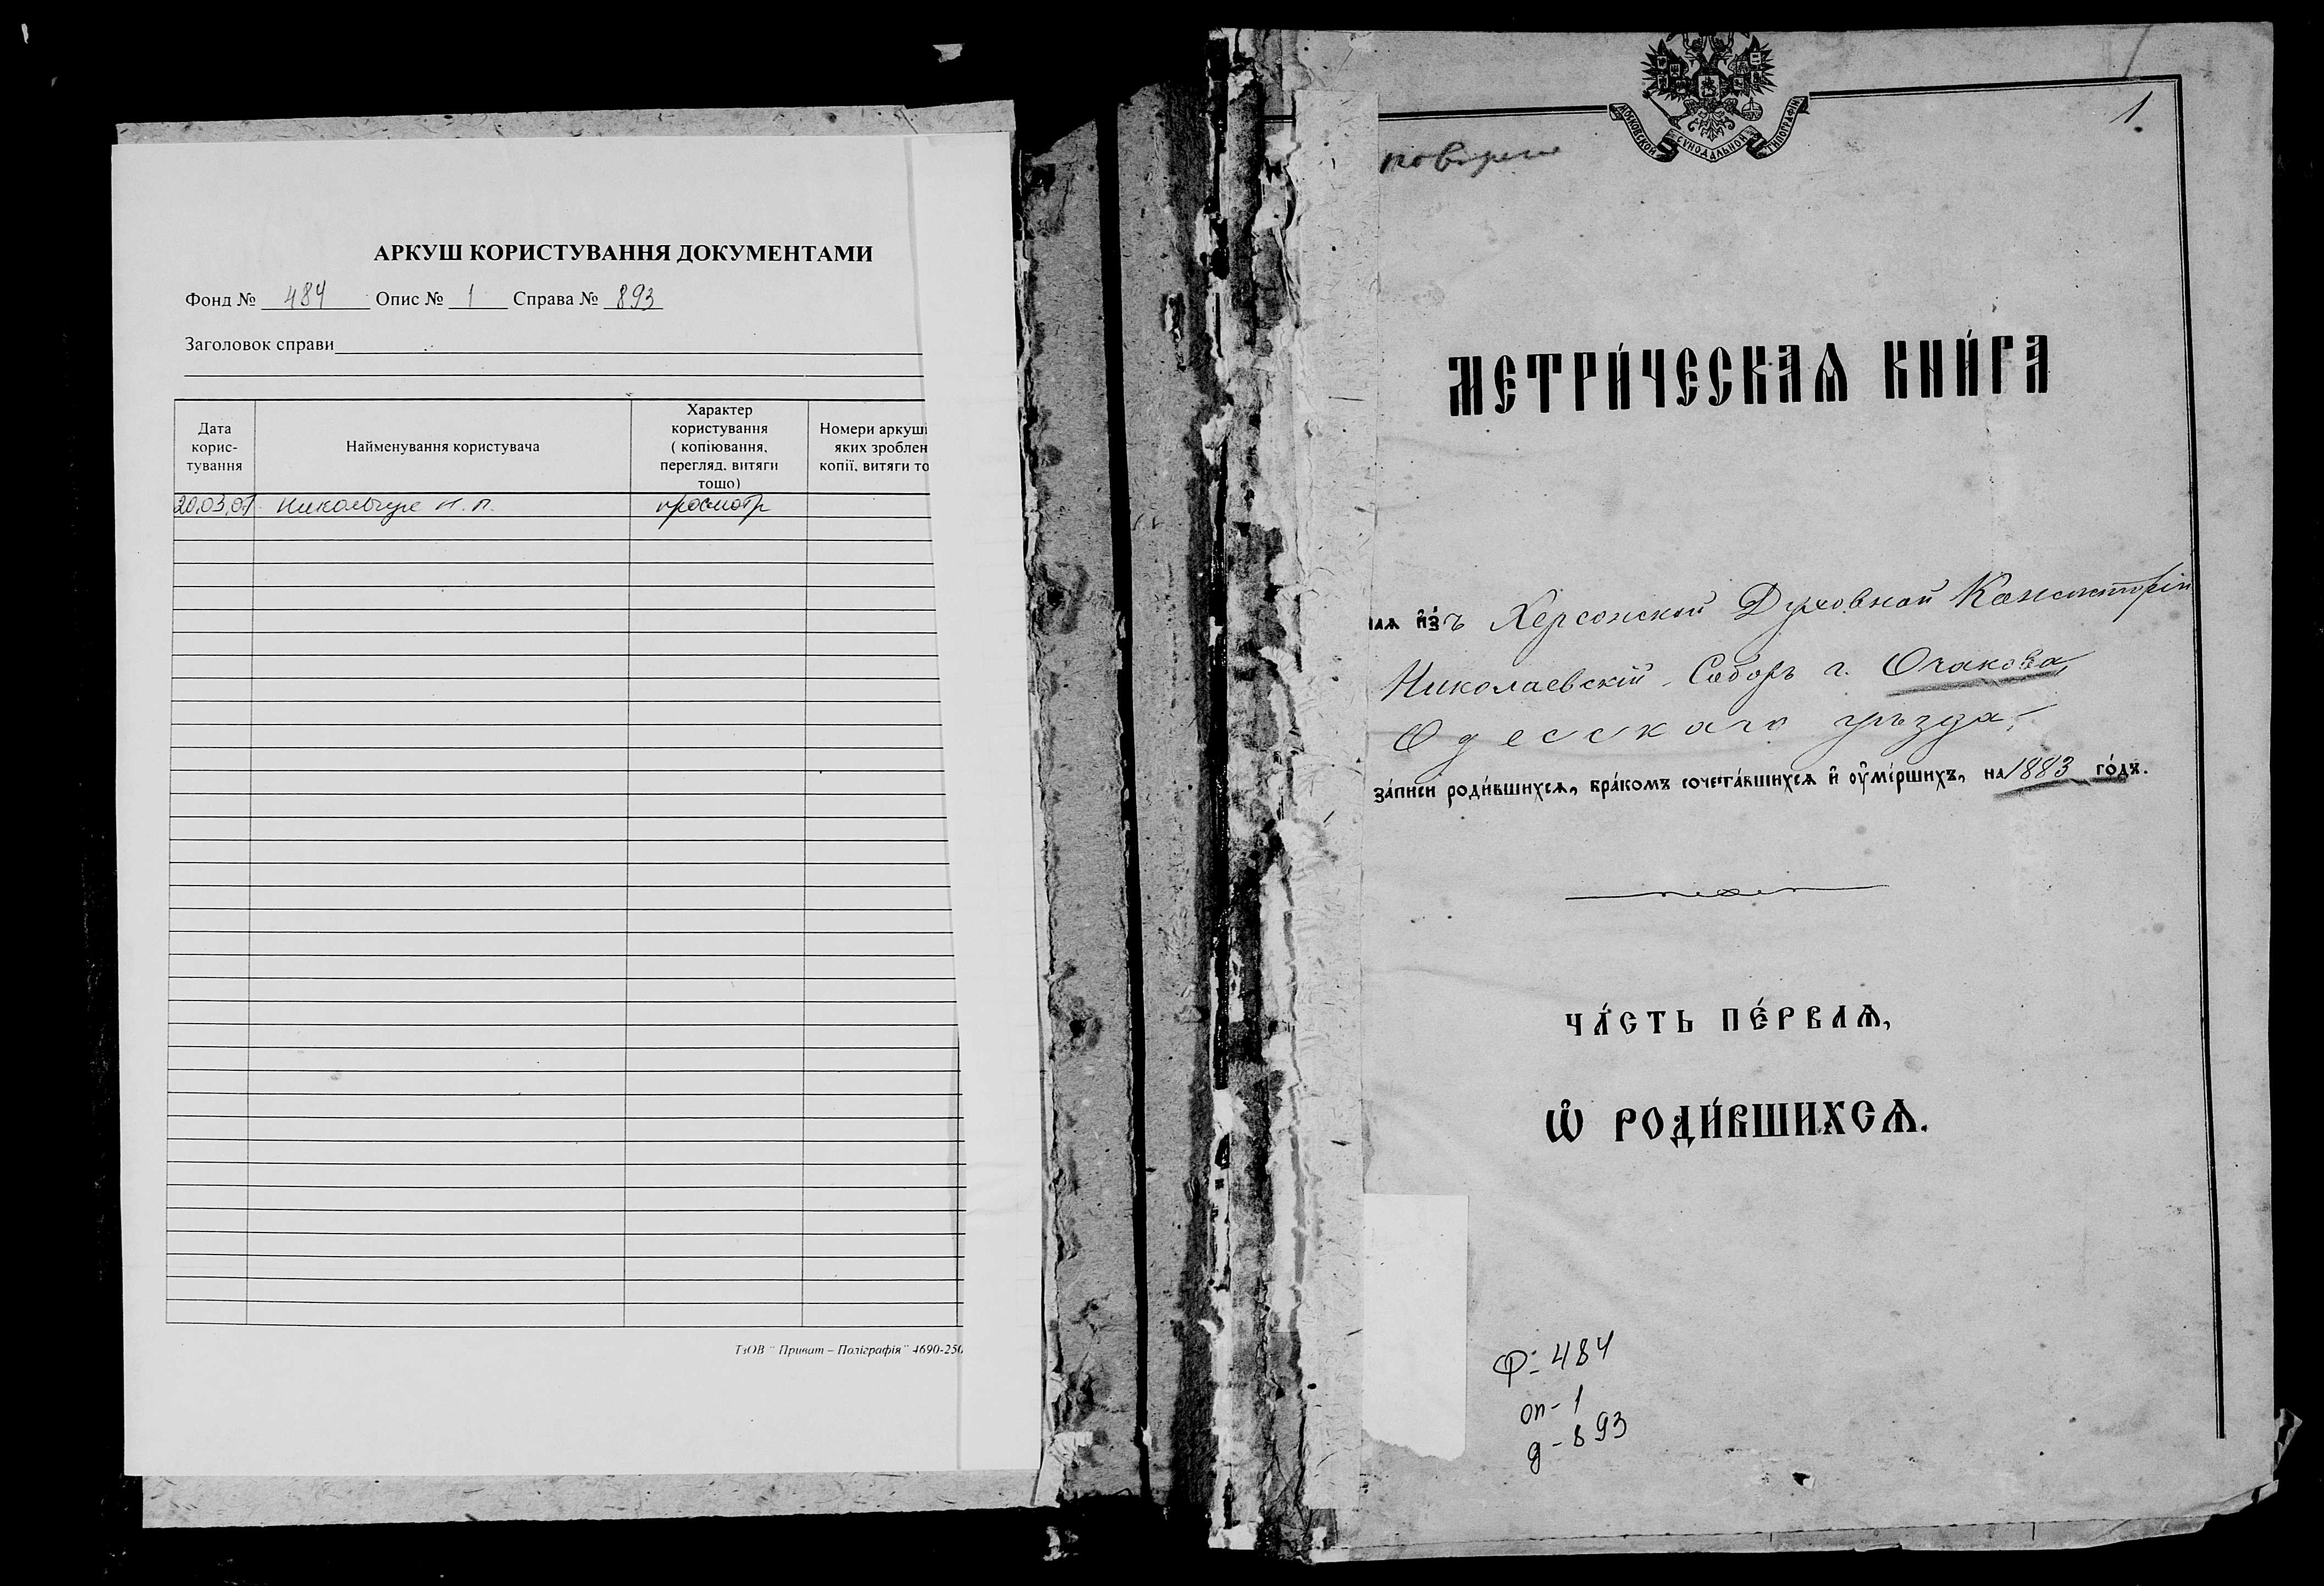 АРКУШ КОРИСТУВАННЯ ДОКУМЕНТАМИ
Фонд № 484 Опис № 1 Справа № 893
Заголовок справи
Дата корис-тування
Найменування користувача
Характер користування ( копіювання, перегляд, витяги тощо)
Номери аркуші
яких зроблен
копії, витяги то
20,03,07 Н. П. просмотр
ТзОВ " Приват – Поліграфія " 4690-250
МОСКОВСКОЙ СУНОДАЛЬНОЙ ТИПОГРАФІИ
1
МЕТРИ́ЧЕСКАѦ КНИ́ГА
наѧ и҆зъ Херсонской Духовной Консисторіи
Николаевскій Соборъ г. Очакова,
Одесскаго уѣзда,
за́писи роди́вшихсѧ, бра́комъ сочета́вшихсѧ и҆ ᲂу҆ме́ршихъ, на 1883 го́дъ.
ЧА́СТЬ ПЕ́РВАѦ,
Ѽ РОДИ́ВШИХСѦ.
Ф- 484
оп- 1
д- 893